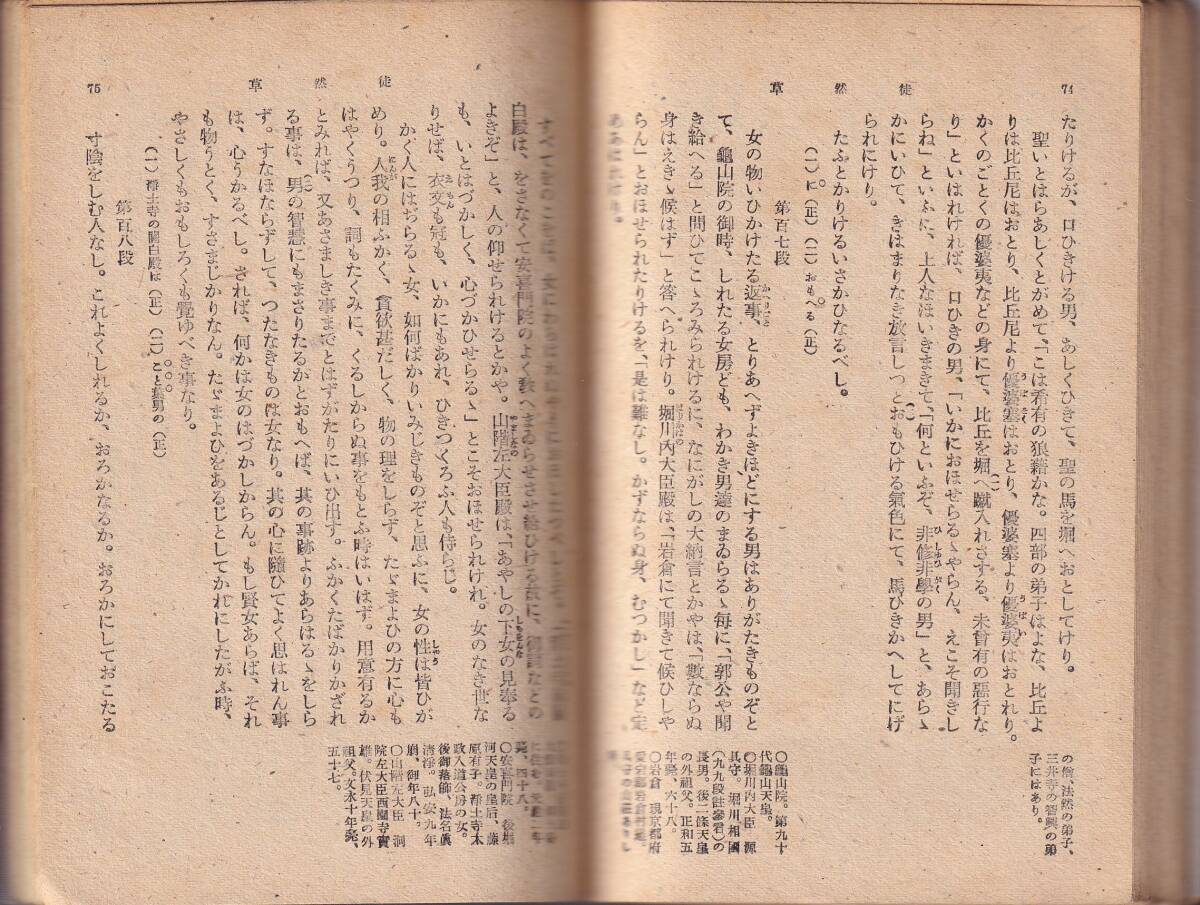 74
徒然草
たりけるが、口ひきける男、あしくひきて、聖の馬を堀へおとしてけり。
聖いとはらあしくとがめて、「こは希有の狼藉かな。四部の弟子はよな、比丘よ
りは比丘尼はおとり、比丘尼より優婆塞はおとり、優婆塞より優婆夷はおとれり。
かくのごとくの優婆夷などの身にて、比丘を堀へ蹴入れさする、未曾有の惡行な
り」といはれければ、口ひきの男、「いかにおほせらるゝやらん、えこそ聞きし
らね」といふに、上人なほいきまきて、「何といふぞ、非修非學の男」と、あらゝ
かにいひて、きはまりなき放言しつとおもひける氣色にて、馬ひきかへしてにげ
られにけり。
たふとかりけるいさかひなるべし。
(一)に(正) (二)おもへる(正)
第百七段
女の物いひかけたる返事、とりあへずよきほどにする男はありがたきものぞと
て、龜山院の御時、しれたる女房ども、わかき男達のまゐらるゝ每に、「郭公や聞
き給へる」と問ひてこゝろみられけるに、なにがしの大納言とかやは、「數ならぬ
身はえきゝ候はず」と答へられけり。堀川內大臣殿は、「岩倉にて聞きて候ひしや
らん」とおほせられたりけるを、「是は難なし。かずならぬ身、むつかし」など定
めあはれけり。
の僧、法然の弟子、
三井寺の智興の弟
子にはあり。
〇龜山院。第九十
代龜山天皇。
〇堀川內大臣 源
具守。堀川相國
(九九段註參看)の
長男。後二條天皇
の外祖父。正和五
年薨、六十八。
〇岩倉 現京都府
75
徒然草
すべてをのこをば、女にわらはれぬ
白殿は、をさなくて安喜門院のよく敎へまゐらせさせ給ひける故に、御詞などの
よきぞ」と、人の仰せられけるとかや。山階左大臣殿は、「あやしの下女の見奉る
も、いとはづかしく、心づかひせらるゝ」とこそおほせられけれ。女のなき世な
りせば、衣文も冠も、いかにもあれ、ひきつくろふ人も侍らじ。
かく人にはぢらるゝ女、如何ばかりいみじきものぞと思ふに、女の性は皆ひが
めり。人我の相ふかく、貪欲甚だしく、物の理をしらず、たゞまよひの方に心も
はやくうつり、詞もたくみに、くるしからぬ事をもとふ時はいはず。用意有るか
とみれば、又あさましき事までとはずがたりにいひ出す。ふかくたばかりかざれ
る事は、男の智慧にもまさりたるかとおもへば、其の事跡よりあらはるゝをしら
ず。すなほならずして、つたなきものは女なり。其の心に隨ひてよく思はれん事
は、心うかるべし。されば、何かは女のはづかしからん。もし賢女あらば、それ
も物うとく、すさまじかりなん。たゞまよひをあるじとしてかれにしたがふ時、
やさしくもおもしろくも覺ゆべき事なり。
(一)淨土寺の關白殿は(正) (二)こと葉男の(正)
第百八段
寸陰をしむ人なし。これよくしれるか、おろかなるか。おろかにしておこたる
薨、四十八。
〇安喜門院 後堀
河天皇の皇后、藤
原有子。淨土寺太
政入道公房の女。
後御落飾、法名眞
淸淨。弘安九年
崩、御年八十。
〇山階左大臣 洞
院左大臣西園寺實
雄。伏見天皇の外
祖父。文永十年薨、
五十七。